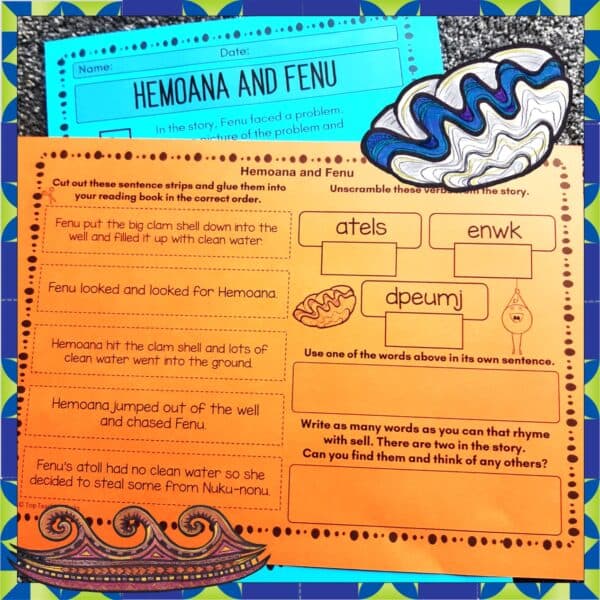 Name:
Date:
HEMOANA AND FENU
In the story, Fenu faced a problem.
picture of the problem and
Hemoana and Fenu
Cut out these sentence strips and glue them into
your reading book in the correct order.
Fenu put the big clam shell down into the
well and filled it up with clean water.
Fenu looked and looked for Hemoana.
Hemoana hit the clam shell and lots of
clean water went into the ground.
Hemoana jumped out of the well
and chased Fenu.
Fenu's atoll had no clean water so she
decided to steal some from Nuku-nonu.
© Top Tea
Unscramble these verbs from the story.
atels
enwk
dpeumj
Use one of the words above in its own sentence.
Write as many words as you can that rhyme
with sell. There are two in the story.
Can you find them and think of any others?